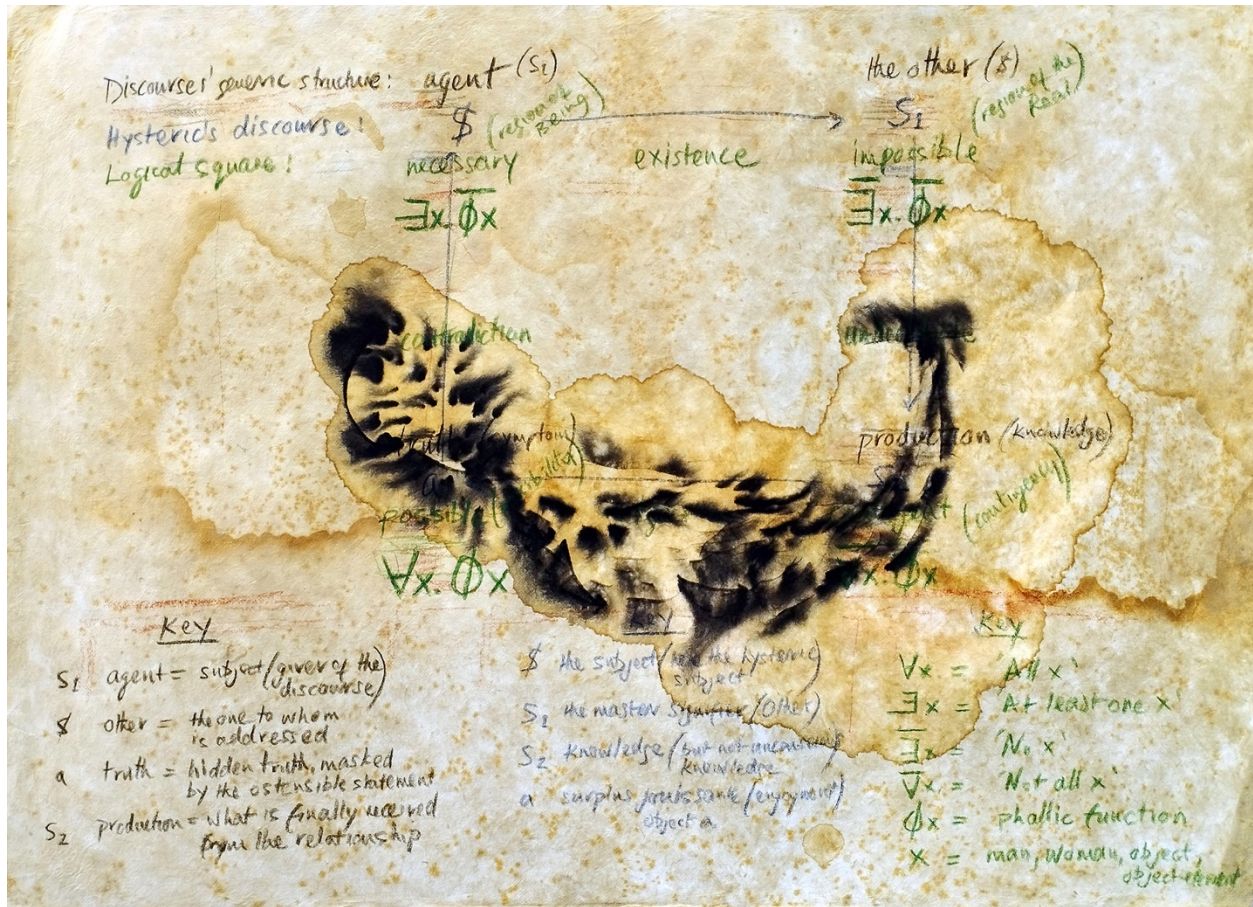 Discourses' generic structure: agent (S1) the other ($)
Hysteric's discourse: $ (region of Being) S1 (region of the Real)
Logical square: necessary existence impossible
∃x.Φ̅x ∃̅x.Φ̅x
contradiction
truth (symptom) production (knowledge)
a
possible (contingency)
∀x.Φx x.Φx
Key
S1 agent = subject (giver of the
discourse)
$ other = the one to whom
is addressed
a truth = hidden truth, masked
by the ostensible statement
S2 production = what is finally received
from the relationship
Key
$ the subject (here the hysteric
subject)
S1 the master signifier (Other)
S2 knowledge (but not unconscious
knowledge
a surplus jouissance (enjoyment)
object a
Key
∀x = 'All x'
∃x = 'At least one x'
∃̅x = 'No x'
∀̅x = 'Not all x'
Φx = phallic function
x = man, woman, object,
object-element